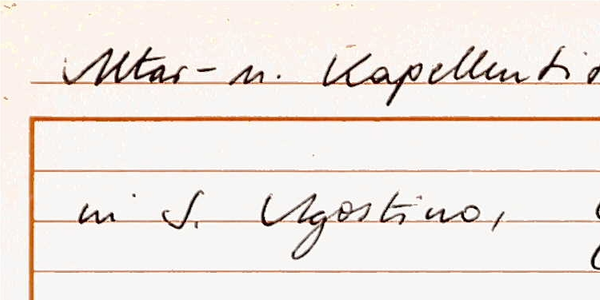 Altar- u. Kapellentit
in S. Agostino,